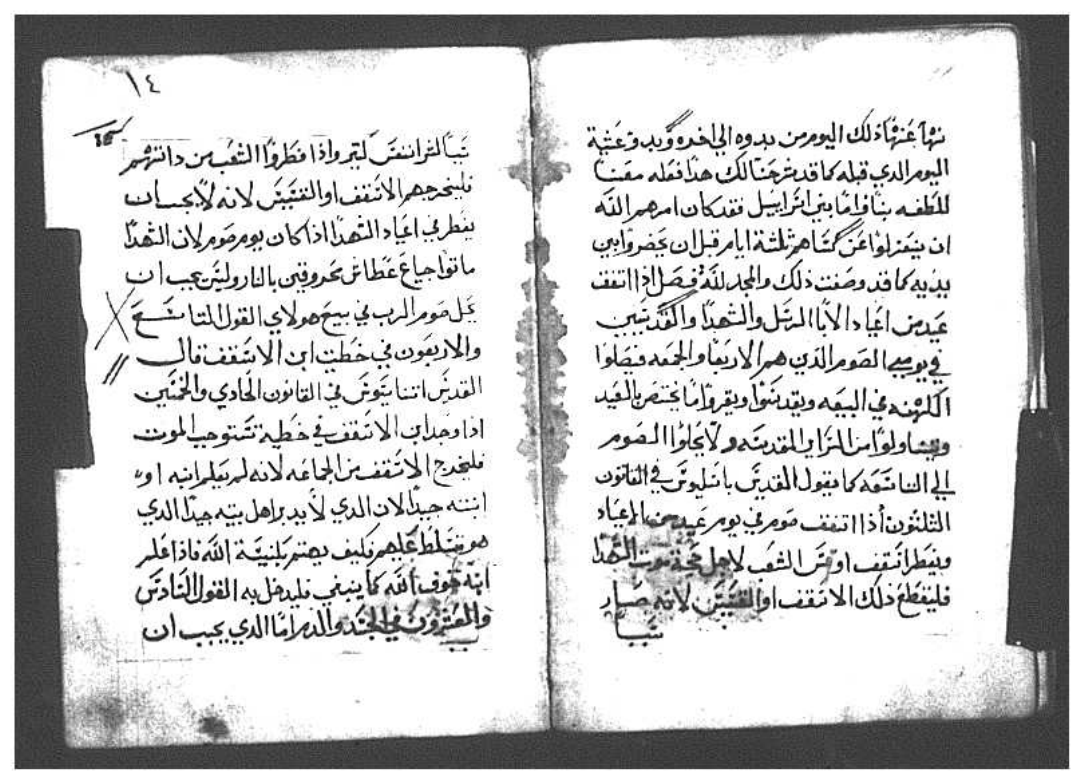 نهاً عنها ذلك اليوم من بدوه الي اخره وبدو عشية
اليوم الدي قبله كما قد شرحنا لك هدا فعله
بنا واما بني اسراييل فقد كان امرهم الله
ان يعتزلوا عن نساهم ثلثة ايام قبل ان يحضروا بين
يديه كما قد وصفت ذلك والمجد لله فصل اذا اتفق
عيد من اعياد الابا الرسل والشهدا والقديسين
في يومي الصوم الذين هم الاربعا والجمعه فصلوا
الكهنه في البيعه ويقدسوا ويقروا ما يختص بالعيد
ويتناولوا من السراير المقدسه ولا يحلوا الصوم
الي التاسعه كما يقول القديس باسليوس في القانون
الثلثون أذا اتفق صوم في يوم عيد من الاعياد
ويفطر اسقف او قس الشعب لاجل محبة موت الشهدا
فليقطع ذلك الاسقف او القسيس لانه صار
سبباً
١٤
سبباً لشر انفس كثيره واذا فطروا الشعب من داتهم
فليخرجهم الاسقف او القسيس لانه لا يجب ان
يفطر في اعياد الشهدا اذا كان يوم صوم لان الشهدا
ماتوا جياع عطاش محروقين بالنار وليس يجب ان
يحل صوم الرب في بيع هولاي القول التاسع
والاربعون في خطية ابن الاسقف قال
القديس اتناسيوس في القانون الحادي والخمسين
اذا وجد ابن الاسقف في خطية تستوجب الموت
فليخرج الاسقف من الجماعه لانه لم يعلم ابنه او
ابنته جيداً لان الدي لا يدبر اهل بيته جيداً الدي
هو متسلط عليهم فكيف يهتم بكنيسة الله فاذا علم
ابنه خوف الله كما ينبغي فليدخل به القول السادس
والعشرون في الجسد والدم اما الدي يجب ان